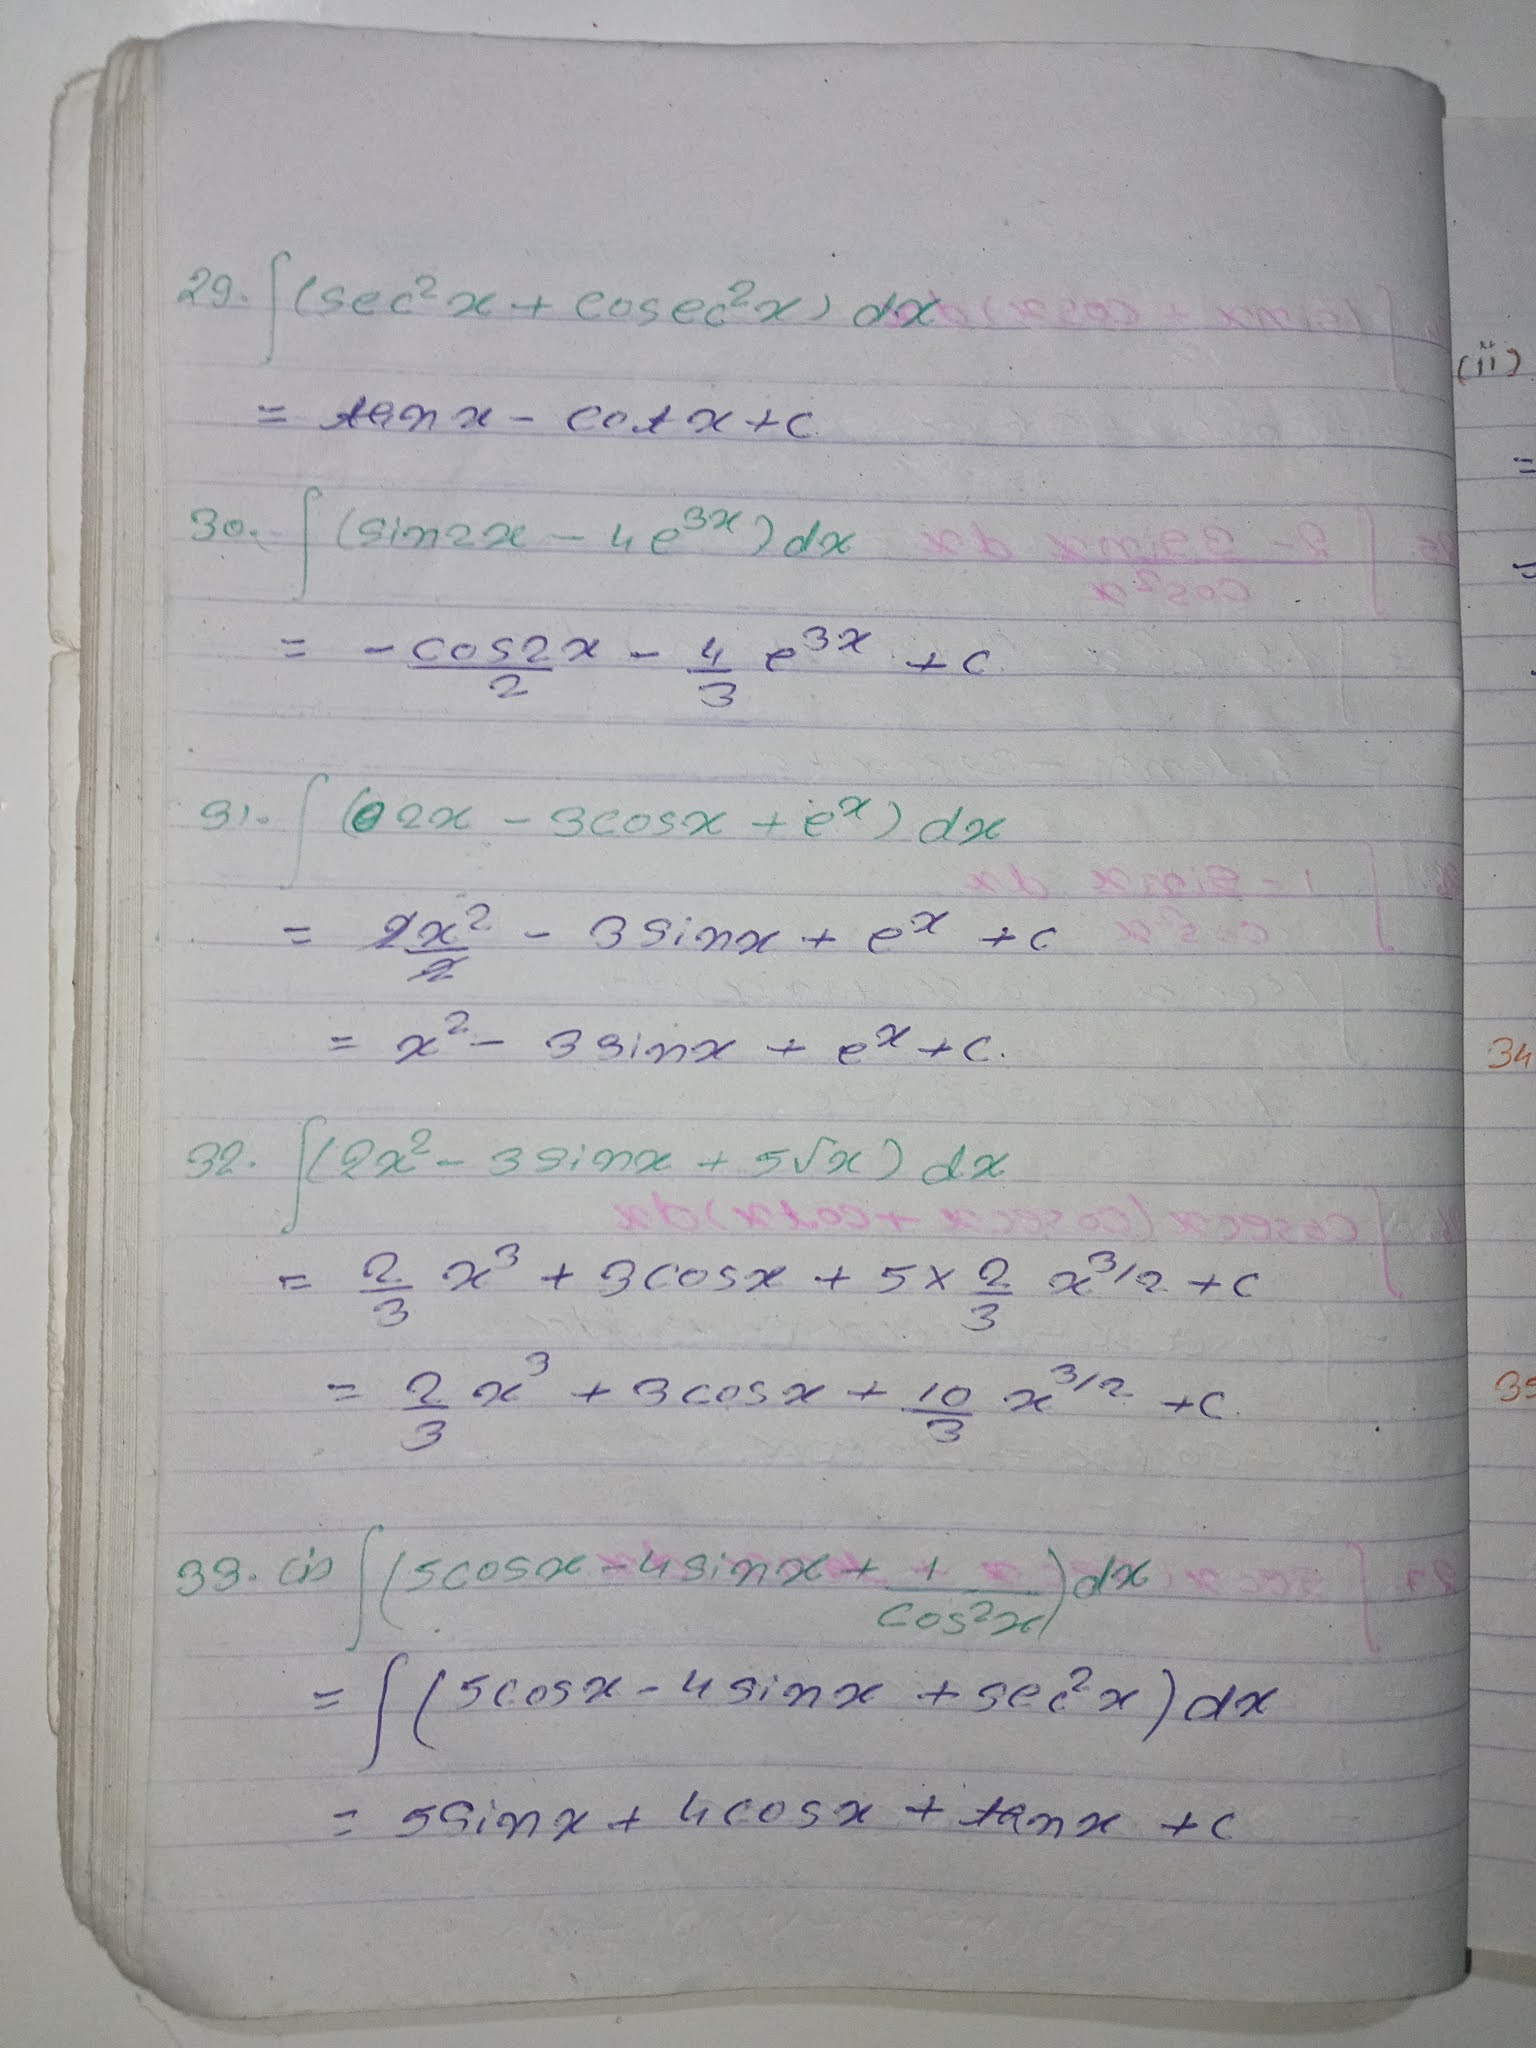 29. ∫(sec²x + cosec²x) dx
= tanx - cotx + c
30. ∫(sin2x - 4e^3x) dx
= -cos2x/2 - 4/3 e^3x + c
31. ∫(2x - 3cosx + e^x) dx
= 2x²/2 - 3sinx + e^x + c
= x² - 3sinx + e^x + c.
32. ∫(2x² - 3sinx + 5√x) dx
= 2/3 x³ + 3cosx + 5 × 2/3 x^3/2 + c
= 2/3 x³ + 3cosx + 10/3 x^3/2 + c.
33. (i) ∫(5cosx - 4sinx + 1/cos²x) dx
= ∫(5cosx - 4sinx + sec²x) dx
= 5sinx + 4cosx + tanx + c
(ii)
=
34
35